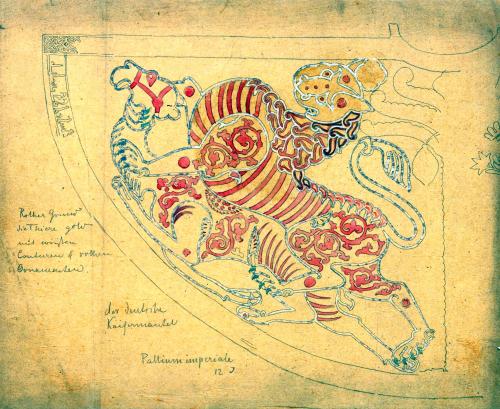 Rother Grund
die Thiere
mit weißen
Conturen & rothen
Ornamenten
der deutsche
Kaisermantel
Pallium imperiale
12 J